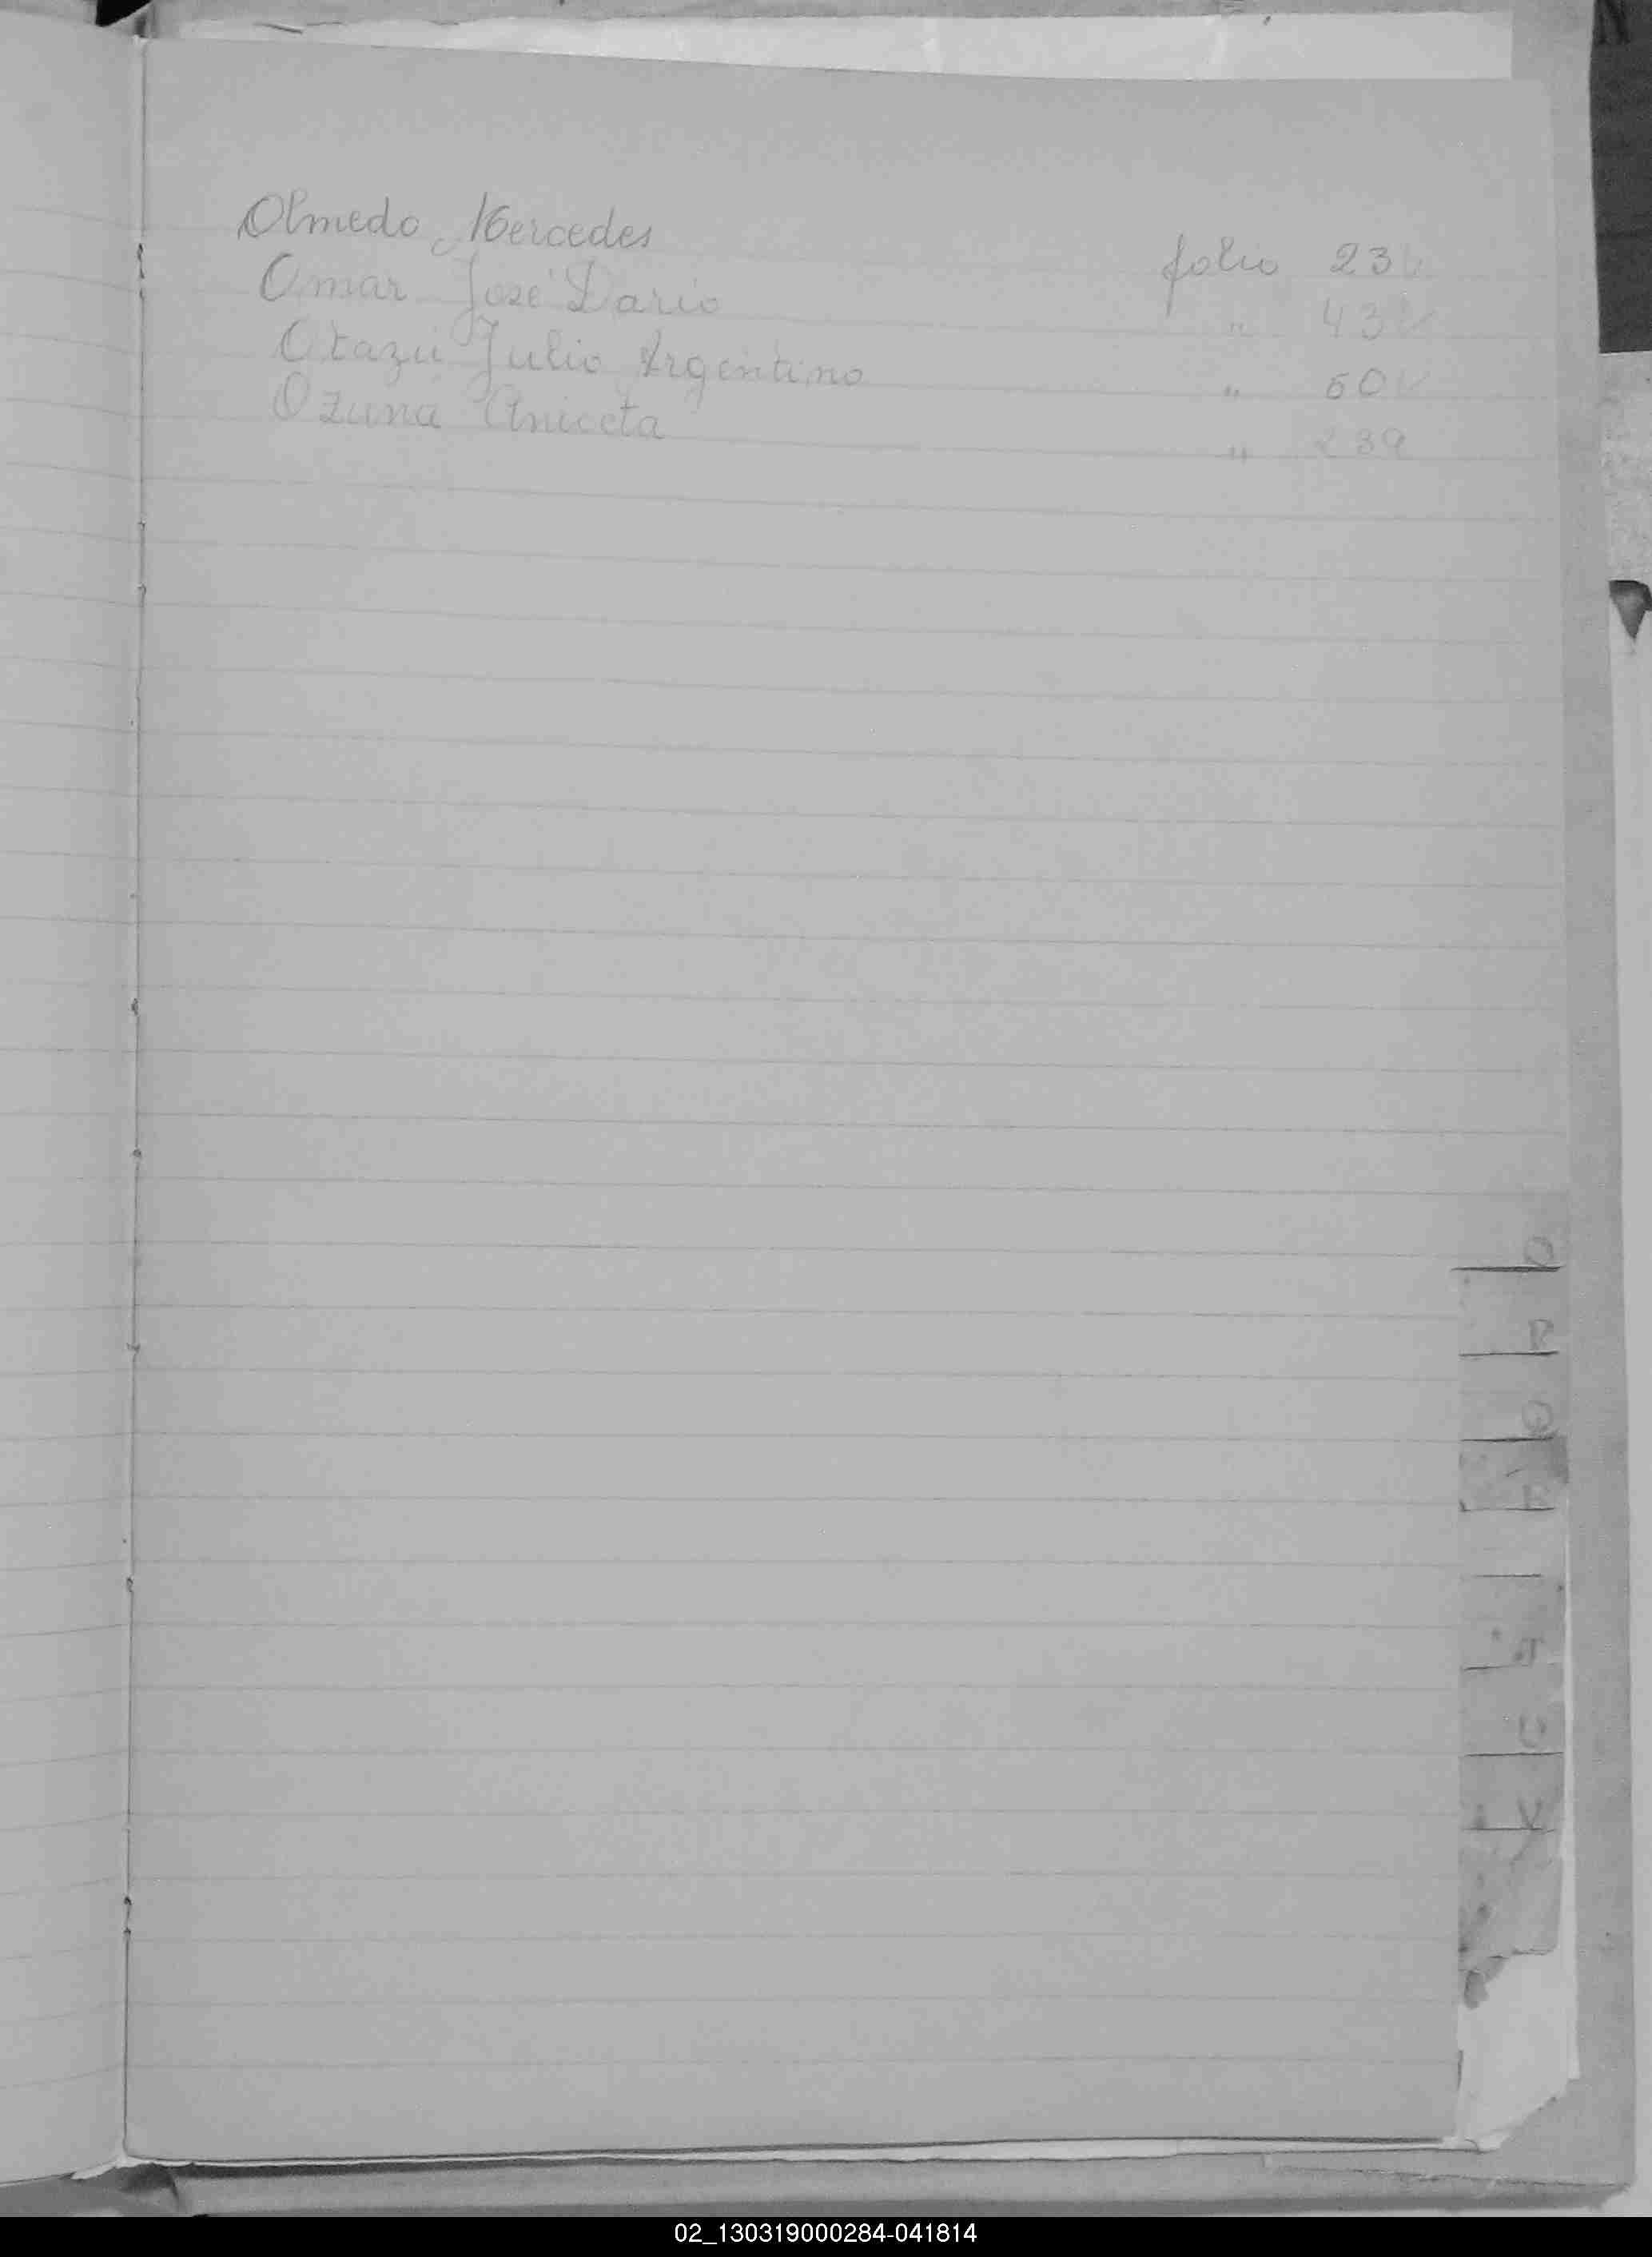 Olmedo, Mercedes folio 23v
Omar José Dario " 43v
Otazú Julio Argentino " 60v
Ozuna Aniceta " 239
O
P
Q
R
T
U
V
02_130319000284-041814